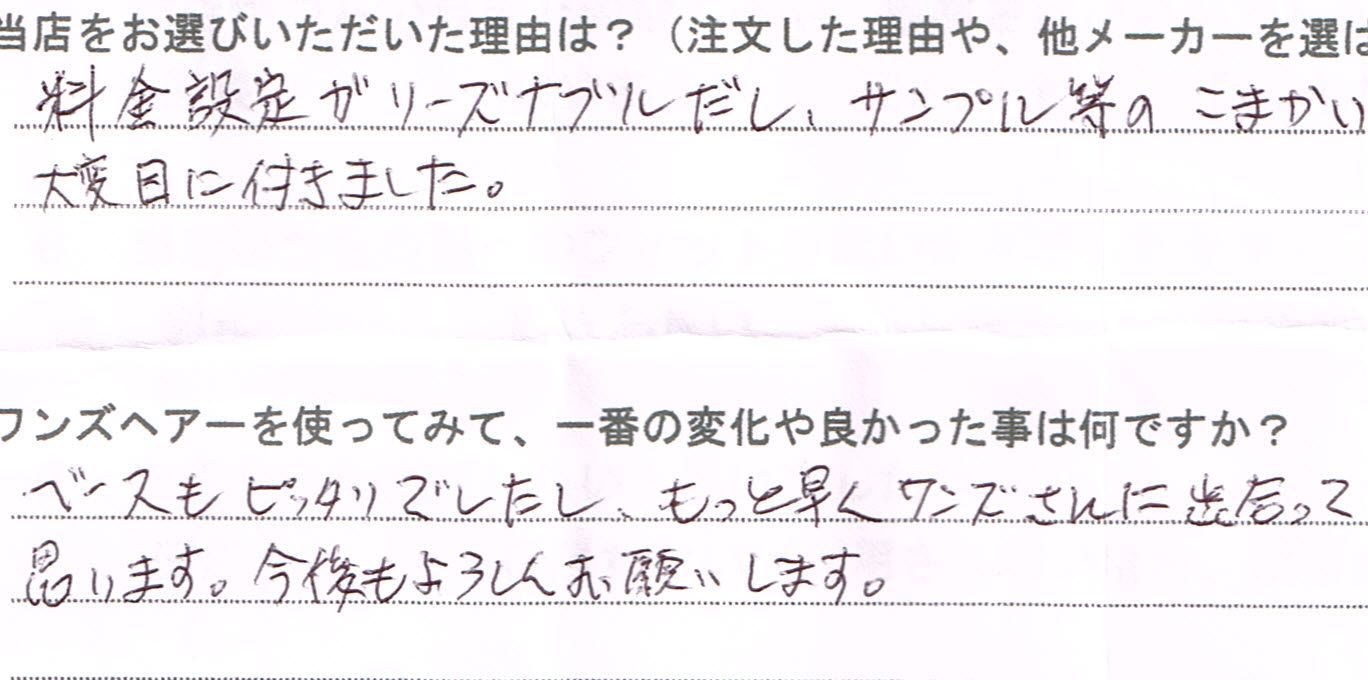 当店をお選びいただいた理由は？（注文した理由や、他メーカーを選ば
料金設定がリーズナブルだし、サンプル等のこまかい
大変目に付きました。
ワンズヘアーを使ってみて、一番の変化や良かった事は何ですか？
ベースもピッタリでしたし、もっと早くワンズさんに出合って
思います。今後もよろしくお願いします。